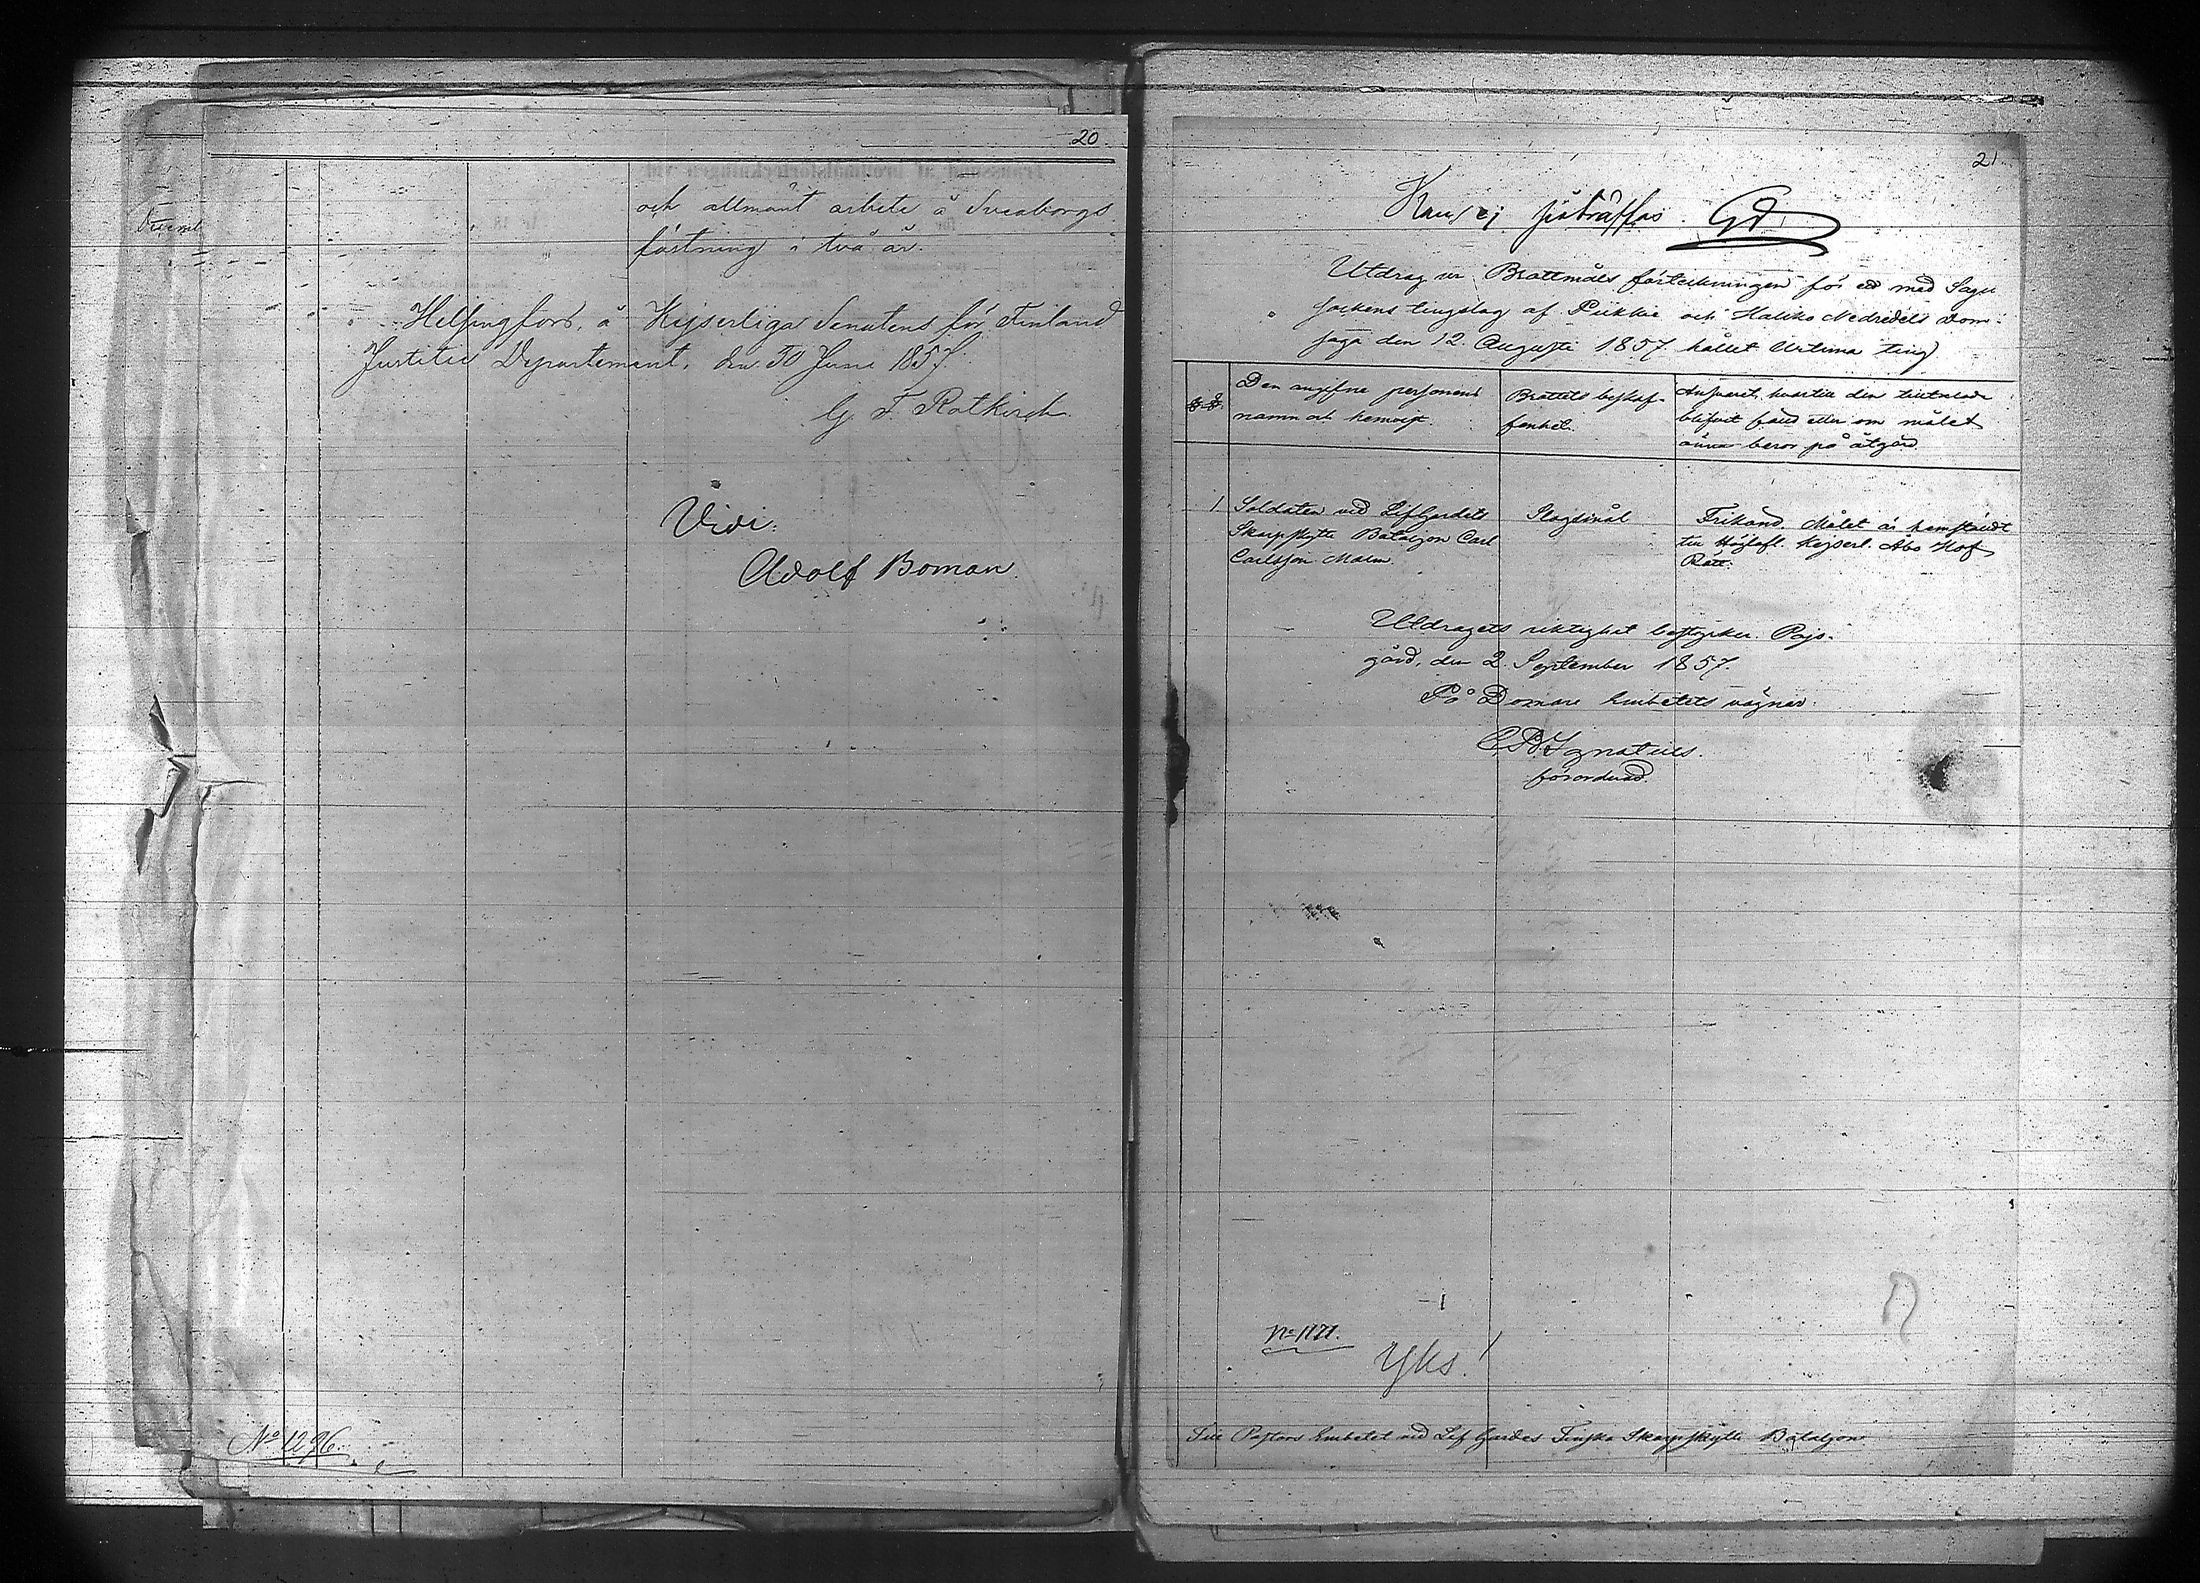 20
och allmänt arbete å Sveaborgs
fästning i två år.
Helsingfors, å Kejserliga Senatens för Finland
Justitie Departement, den 30 Juni 1857.
G. F. Rotkirch
Vidi:
Adolf Boman.
No 1296.
21
Kan ej påträffas. GD
Utdrag ur Brottmåls förteckningen för ett med Sagu
sockens tingslag af Piikkie och Halikko Nedredels Dom-
saga den 12 Augusti 1857 hållet Urtima ting
§.§. Den angifne personens Brottets beskaf- Ansvaret, hvartill den tilltalade
namn och hemvist. fenhet. blifvit fäld eller om målet
ännu beror på åtgärd.
1 Soldaten vid Lifgardets Slagsmål Frikänd. Målet är hemstäldt
Skarpskytte Bataljon Carl till Höglofl. Kejserl. Åbo Hof
Carlsson Malm. Rätt.
Utdragets riktighet bestyrker. Pojs-
gård, den 2 September 1857.
På Domare Embetets vägnar:
Ignatius.
förordnad.
No 1171.
Yks!
Till Pastors Embetet vid Lif Gardes Finska Skarpskytte Bataljon